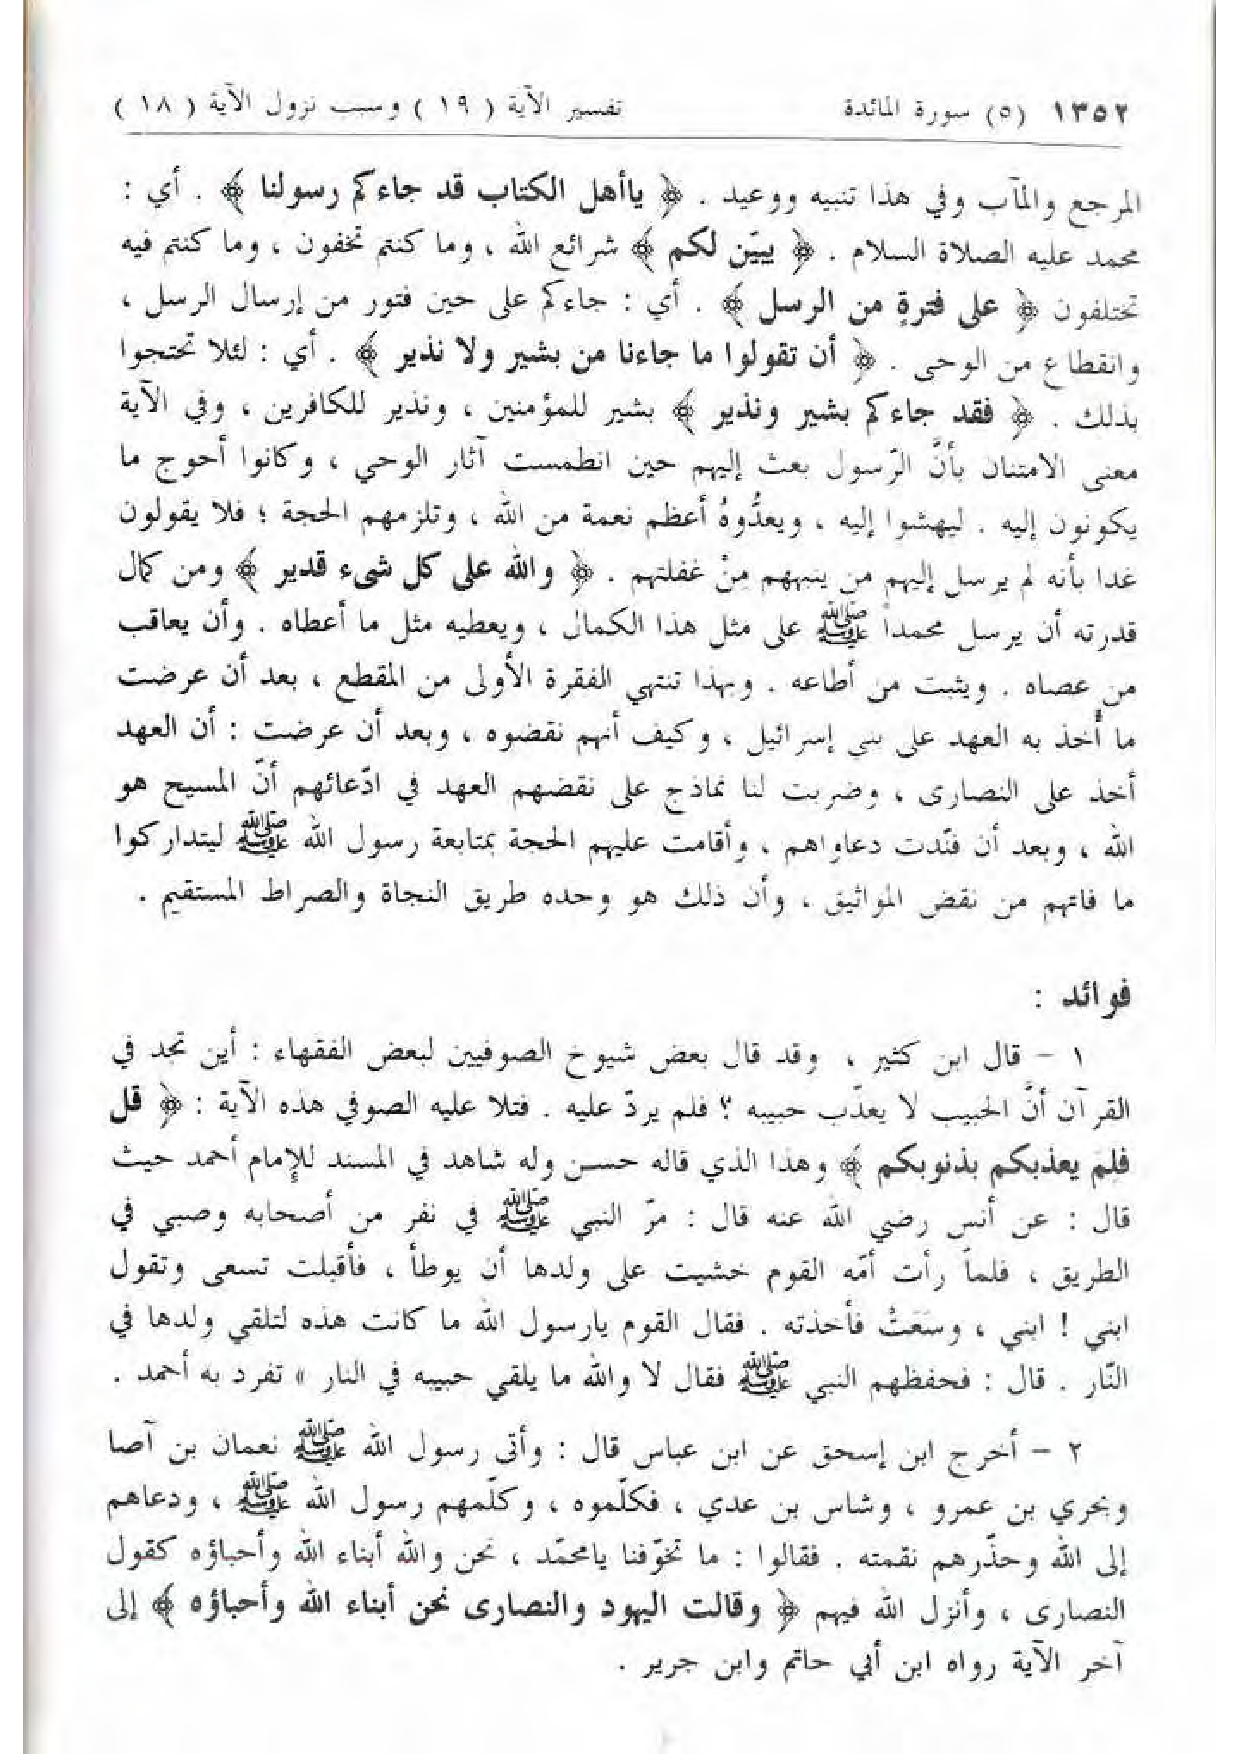 ١٣٥٢ (٥) سورة المائدة تفسير الآية ( ١٩ ) وسبب نزول الآية ( ١٨ )
المرجع والمآب وفي هذا تنبيه ووعيد . ﴿ ياأهل الكتاب قد جاءكم رسولنا ﴾ . أي :
محمد عليه الصلاة السلام . ﴿ يبيّن لكم ﴾ شرائع الله ، وما كنتم تخفون ، وما كنتم فيه
تختلفون ﴿ على فترةٍ من الرسل ﴾ . أي : جاءكم على حين فتور من إرسال الرسل ،
وانقطاع من الوحي . ﴿ أن تقولوا ما جاءنا من بشير ولا نذير ﴾ . أي : لئلا تحتجوا
بذلك . ﴿ فقد جاءكم بشير ونذير ﴾ بشير للمؤمنين ، ونذير للكافرين ، وفي الآية
معنى الامتنان بأنَّ الرّسول بعث إليهم حين انطمست آثار الوحي ، وكانوا أحوج ما
يكونون إليه . ليهشوا إليه ، ويعدُّوهُ أعظم نعمة من الله ، وتلزمهم الحجة ؛ فلا يقولون
غدا بأنه لم يرسل إليهم من ينبههم مِنْ غفلتهم . ﴿ والله على كل شيء قدير ﴾ ومن كمال
قدرته أن يرسل محمداً ﷺ على مثل هذا الكمال ، ويعطيه مثل ما أعطاه . وأن يعاقب
من عصاه . ويثبت من أطاعه . وبهذا تنتهي الفقرة الأولى من المقطع ، بعد أن عرضت
ما أُخذ به العهد على بني إسرائيل ، وكيف أنهم نقضوه ، وبعد أن عرضت : أن العهد
أخذ على النصارى ، وضربت لنا نماذج على نقضهم العهد في ادّعائهم أنّ المسيح هو
الله ، وبعد أن فنّدت دعاواهم ، وأقامت عليهم الحجة بمتابعة رسول الله ﷺ ليتداركوا
ما فاتهم من نقض المواثيق ، وأن ذلك هو وحده طريق النجاة والصراط المستقيم .
فوائد :
١ - قال ابن كثير ، وقد قال بعض شيوخ الصوفيين لبعض الفقهاء : أين تجد في
القرآن أنَّ الحبيب لا يعذّب حبيبه ؟ فلم يردّ عليه . فتلا عليه الصوفي هذه الآية : ﴿ قل
فلم يعذبكم بذنوبكم ﴾ وهذا الذي قاله حسن وله شاهد في المسند للإمام أحمد حيث
قال : عن أنس رضي الله عنه قال : مرّ النبي ﷺ في نفر من أصحابه وصبي في
الطريق ، فلما رأت أمّه القوم خشيت على ولدها أن يوطأ ، فأقبلت تسعى وتقول
ابني ! ابني ، وسَعَتْ فأخذته . فقال القوم يارسول الله ما كانت هذه لتلقي ولدها في
النّار . قال : فحفظهم النبي ﷺ فقال لا والله ما يلقي حبيبه في النار » تفرد به أحمد .
٢ - أخرج ابن إسحق عن ابن عباس قال : وأتى رسول الله ﷺ نعمان بن آصا
وبحري بن عمرو ، وشاس بن عدي ، فكلّموه ، وكلّمهم رسول الله ﷺ ، ودعاهم
إلى الله وحذّرهم نقمته . فقالوا : ما تخوّفنا يامحمّد ، نحن والله أبناء الله وأحباؤه كقول
النصارى ، وأنزل الله فيهم ﴿ وقالت اليهود والنصارى نحن أبناء الله وأحباؤه ﴾ إلى
آخر الآية رواه ابن أبي حاتم وابن جرير .